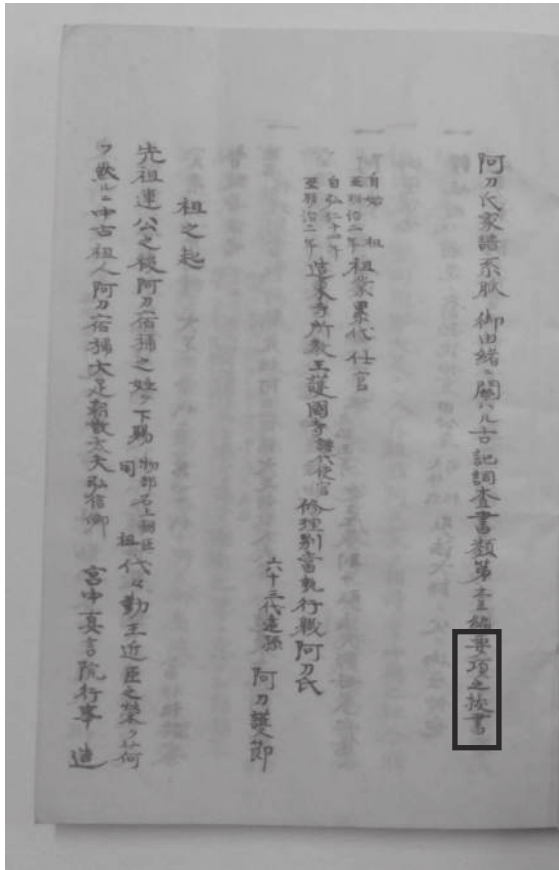 阿刀氏家譜系脈ノ御由緒ニ関ハル古記調査書類第壹編要項之抜書
自始祖
至明治二年
祖業累代仕官
自弘仁十四年
至明治二年
造東寺所教王護國寺
修理別当執行職阿刀氏
六十三代連孫
阿刀護節
祖之起
先祖連公之後阿刀宿祢之姓ヲ下賜
物部石上朝臣
同祖
代々勤王近臣之榮ヲ荷
フ然ルニ中古祖人阿刀宿祢大足朝散太夫弘信卿
宮中真言院行事
造